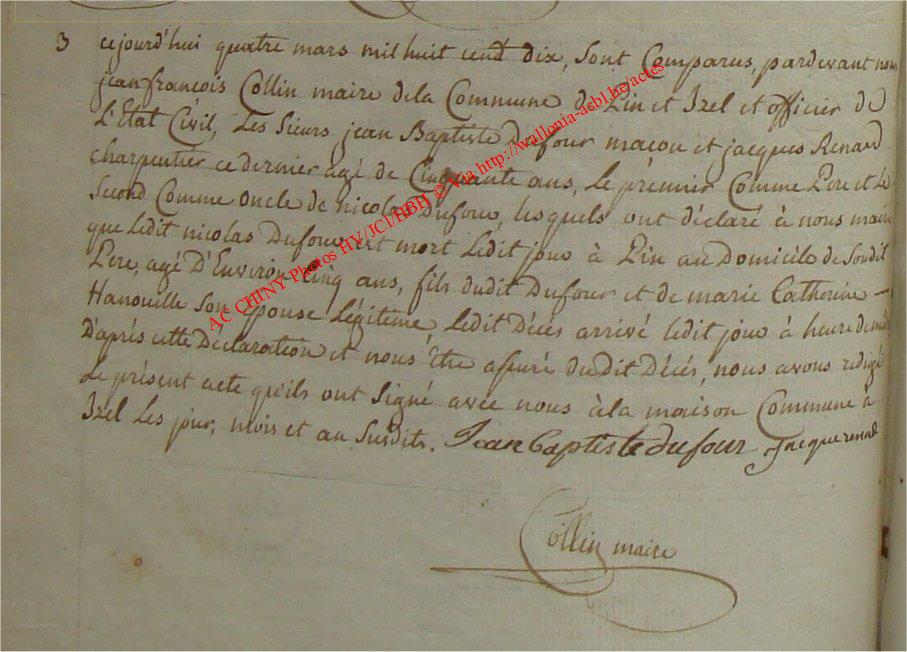 3 cejourd'hui quatre mars mil huit cent dix, sont Comparus, pardevant nous
jean françois Collin maire dela Commune de Pin et Izel et officier de
L'Etat Civil, Les sieurs jean Baptiste Dufour maçon et jacques Renard
charpentier ce dernier agé de Cinquante ans, Le prémier Comme Pere et Le
Second Comme oncle de nicolas Dufour, lesquels ont déclaré à nous maire
que Ledit nicolas Dufour est mort Ledit jour à Pin au Domicile de Soudit
Pere, agé D'Environ Cinq ans, fils dudit Dufour et de marie Catherine —
Hanouille Son Epouse Légitime Ledit Décès arrivé ledit jour à heure de midi
D'après cette Déclaration et nous être assuré dudit Décés, nous avons redigé
Le présent acte qu'ils ont Signé avec nous à la maison Commune à
Izel Les jour, mois et an Susdits. Jean Baptiste dufour Jacque renad
Collin maire
AC CHINY Photos HV/JCl/HBH © via http://wallonia-asbl.be/actes